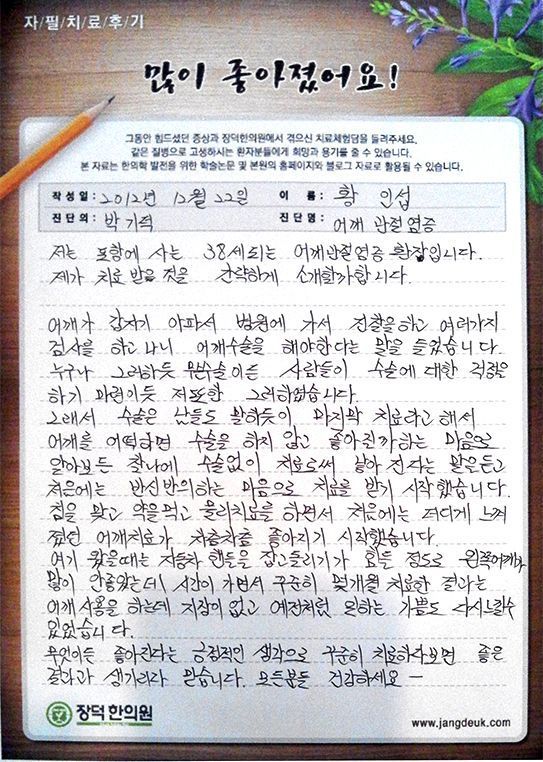 자/필/치/료/후/기
많이 좋아졌어요!
그동안 힘드셨던 증상과 장덕한의원에서 겪으신 치료체험담을 들려주세요.
같은 질병으로 고생하시는 환자분들에게 희망과 용기를 줄 수 있습니다.
본 자료는 한의학 발전을 위한 학술논문 및 본원의 홈페이지와 블로그 자료로 활용될 수 있습니다.
작 성 일 : 2012년 12월 22일 이 름 : 황 인섭
진 단 의 : 박 기덕 진 단 명 : 어깨 관절염증
저는 포항에 사는 38세되는 어깨관절염증 환잡입니다.
제가 치료 받을 것을 간략하게 소개할가합니다.
어깨가 갑자기 아파서 병원에 가서 진찰을하고 여러가지
검사를 하고나니 어깨수술을 해야한다는 말을 들었습니다.
누구나 그러하듯 무슨수술이든 사람들이 수술에 대한 걱정을
하기 마련이듯 저또한 그러하였습니다.
그래서 수술은 남들도 말하듯이 마지막 치료라고 해서
어깨를 어떡하면 수술을 하지 않고 좋아진까하는 마음으로
알아보든 찰나에 수술없이 치료로써 날아 진다는 말을듣고
처음에는 반신반의하는 마음으로 치료를 받기 시작했습니다.
침을 맞고 약을먹고 물리치료를 하면서 처음에는 더디게 느껴
졌던 어깨치료가 차츰차츰 좋아지기 시작했습니다.
여기 왔을때는 자동차 핸들을 잡고돌리기가 힘든 정도로 왼쪽어깨가
많이 안좋았는데 시간이 가면서 꾸준히 몇개월 치료한 결과는
어깨 사용을 하는데 지장이 없고 예전처럼 일하는 기쁨도 다시느낄수
있었습니다.
무엇이든 좋아진다는 긍정적인 생각으로 꾸준히 치료하다보면 좋은
결과과 생기리라 믿습니다. 모든분들 건강하세요 ー
장덕한의원
www.jangdeuk.com